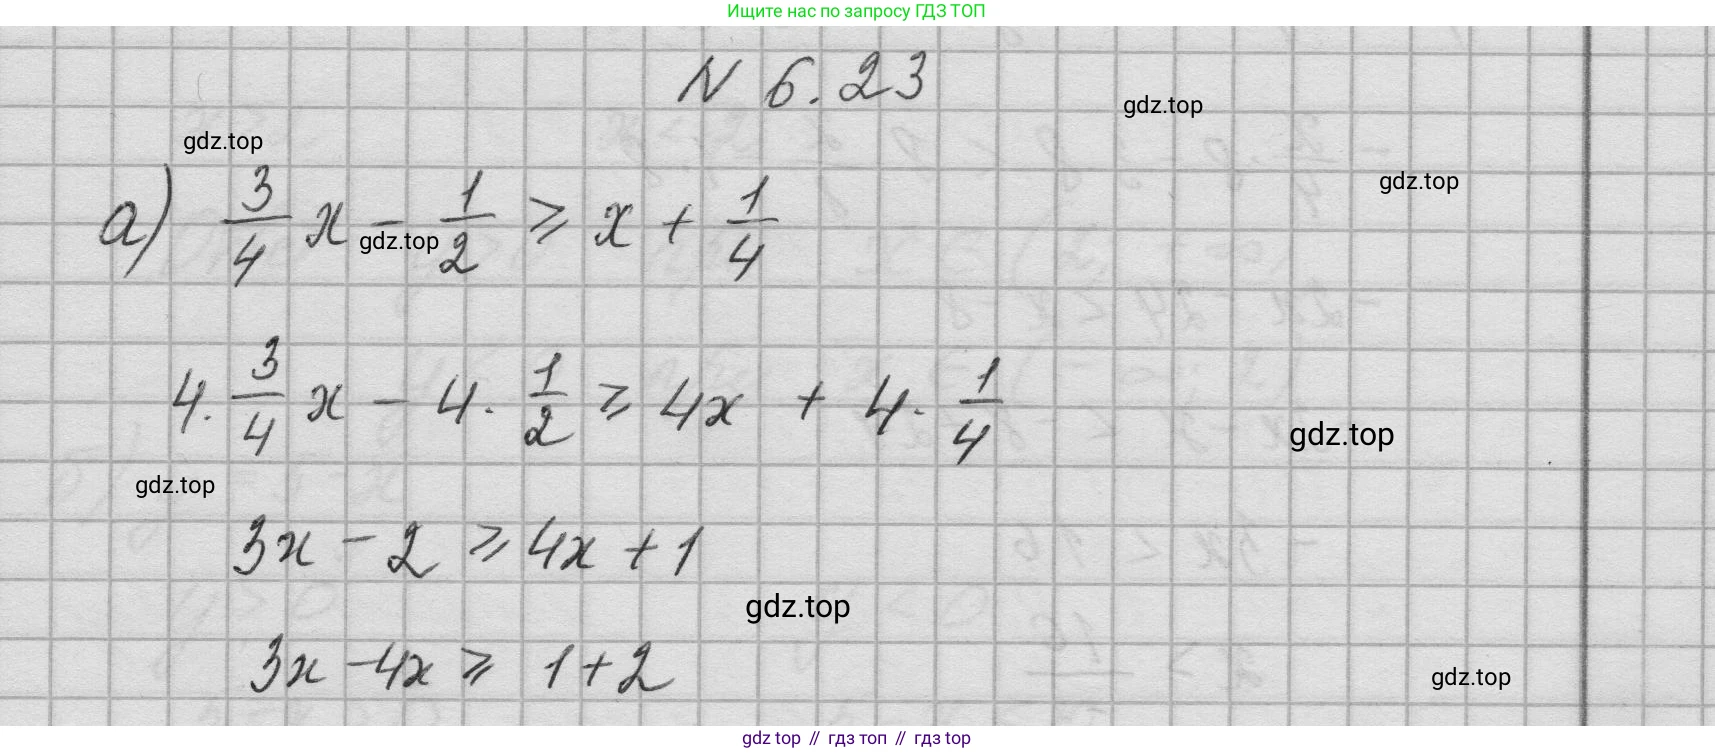 Ищите нас по запросу ГДЗ ТОП
N 6.23
gdz.top
gdz.top
gdz.top
а) 3/4 x - 1/2 ⩾ x + 1/4
gdz.top
4 · 3/4 x - 4 · 1/2 ⩾ 4x + 4 · 1/4
gdz.top
gdz.top
3x - 2 ⩾ 4x + 1
gdz.top
3x - 4x ⩾ 1 + 2
gdz.top
gdz top // гдз топ // gdz top